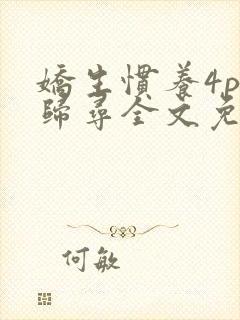 嬌生慣養4p
歸尋全文免
何敏